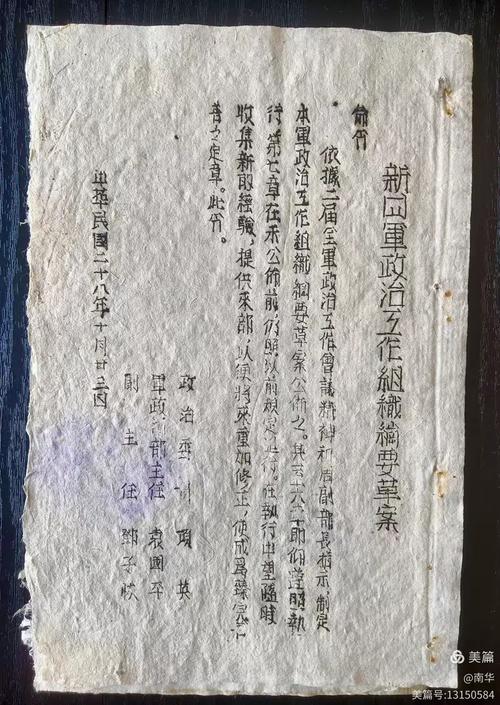 新四軍政治工作組織綱要草案
命令
依據二届全軍政治工作會議精神和周副部長指示，制定
本軍政治工作組織綱要草案公佈之。其至六節仰遵照執
行，第七章在未公佈前，仍照以前規定進行。在執行中望隨時
收集新的經驗，提供來部，以便將來重加修正，使成為臻完
善之定章。此令。
政治委員 項英
軍政治部主任 袁國平
副主任 鄧子恢
中華民國二十八年十月廿三日
美篇
@南华
美篇号:13150584